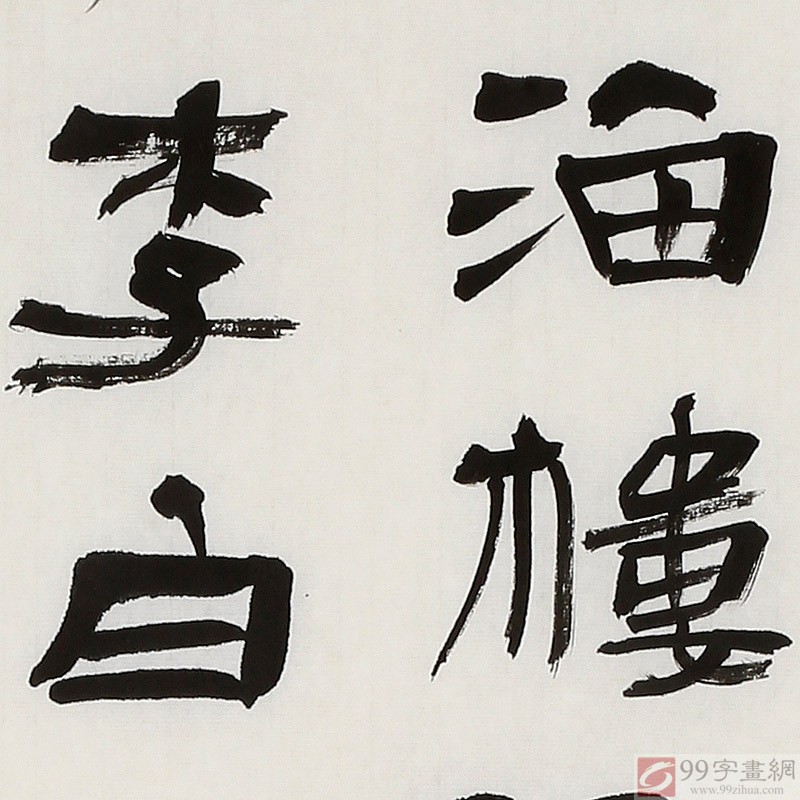 海樓
李白
99字畫網
www.99zihua.com